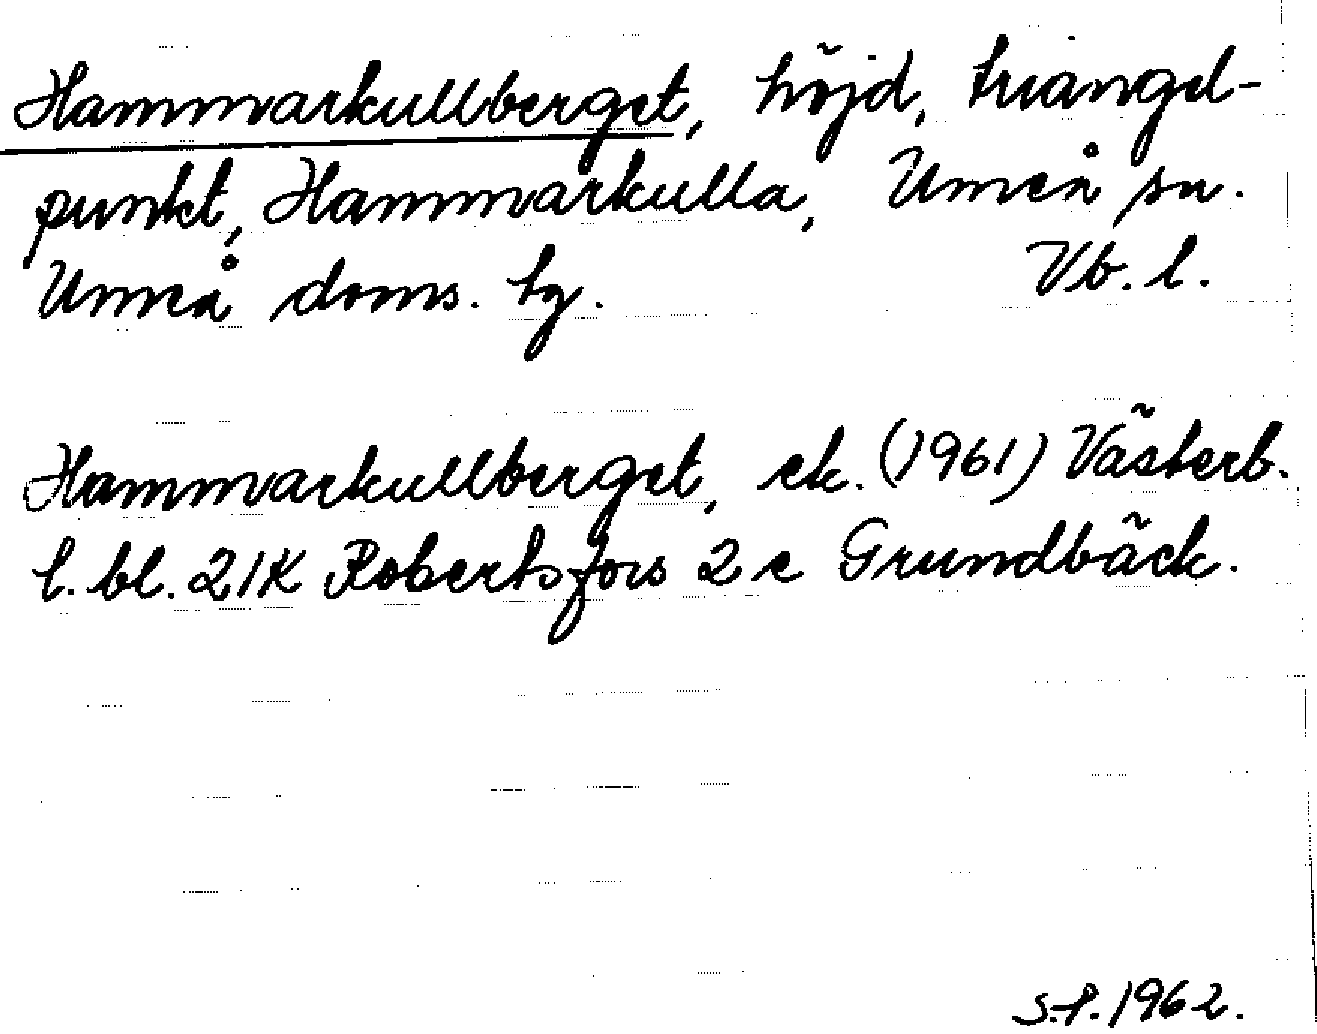 Hammarkullberget, höjd, triangel-
punkt, Hammarkulla, Umeå sn.
Umeå doms. tg. Vb. l.
Hammarkullberget, ek. (1961) Västerb.
l. bl. 21K Robertsfors 2 c Grundbäck.
S.P. 1962.